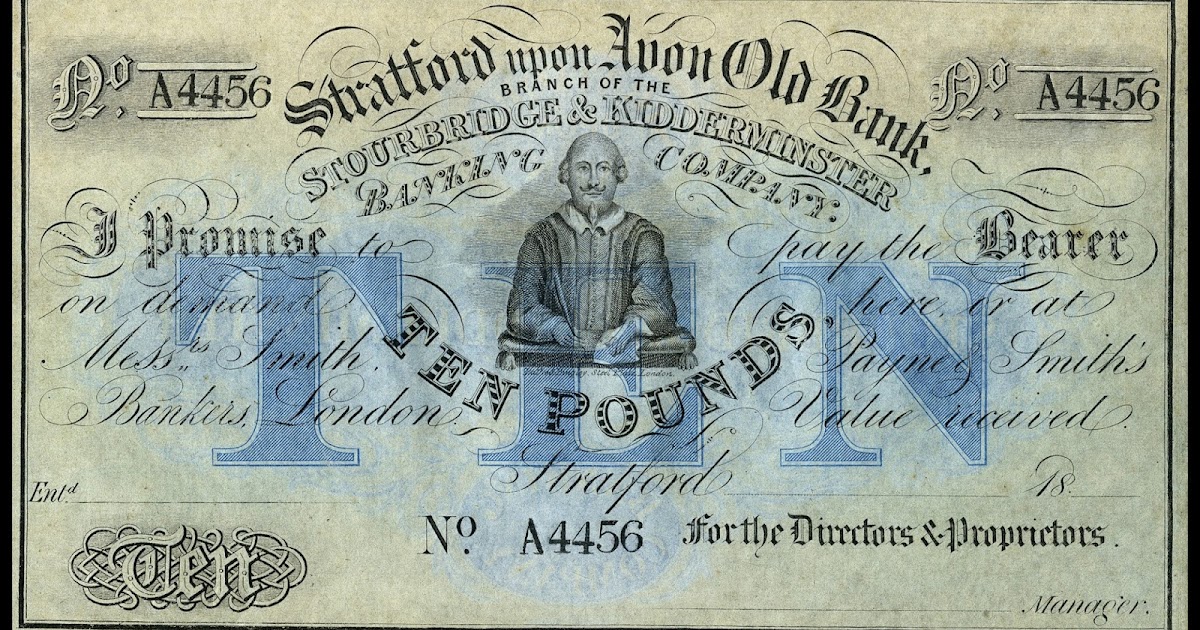 Stratford upon Avon Old Bank,
No. A4456
No. A4456
BRANCH OF THE
STOURBRIDGE & KIDDERMINSTER
BANKING COMPANY.
I Promise to pay the Bearer
on demand here, or at
Messrs. Smith, Payne & Smith's
Bankers, London. Value received.
TEN
TEN POUNDS.
Stratford 18
Entd.
No. A4456 For the Directors & Proprietors.
Ten
Manager.